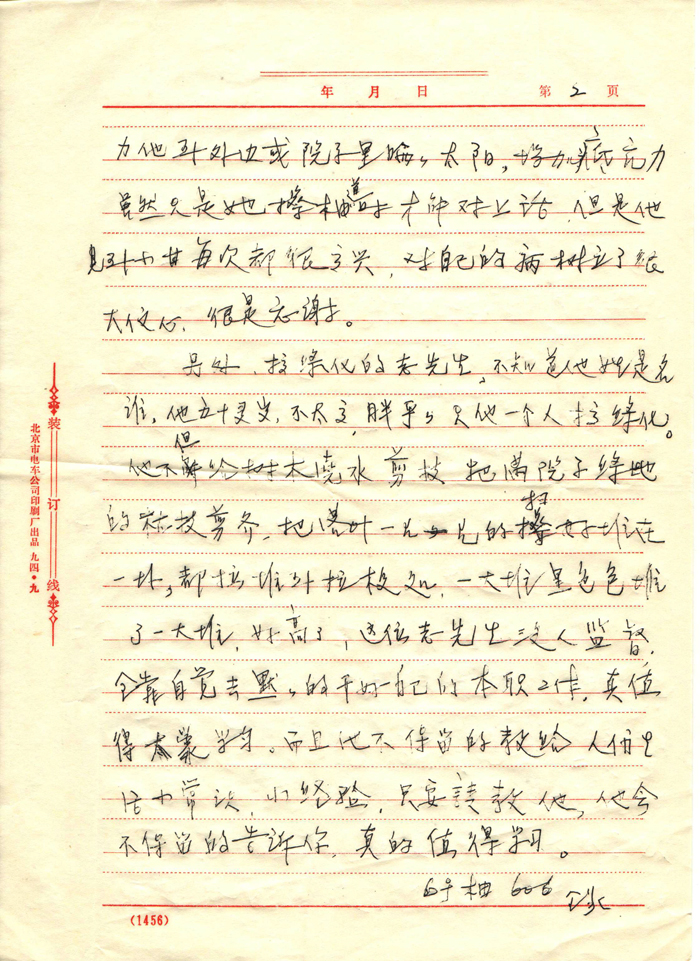 年 月 日 第 2 页
力他到外边或院子里晒々太阳,增加抵亢力
虽然只是她擦楼道时才能对上话,但是他
见到小甘每次都很高兴,对自己的病树立了很
大信心,很是志谢。
另外,搞绿化的老先生,不知道他姓是名
谁,他五十多岁,不太高,胖乎々只他一个人搞绿化。
他不但给树木浇水剪枝把满院子绿地
的树枝剪齐,把落叶一片一片的扫好堆在
一块,都拉堆到垃圾处,一大堆黑色色堆
了一大堆,好高了,这位老先生没人监督,
全靠自觉去默々的干好自己的本职工作,真值
得大家学习。而且他不保留的教给人们生
活小常识,小经验,只要请教他,他会
不保留的告诉你,真的值得学习。
6号楼 606
装
订
线
北京市电车公司印刷厂出品 九四·九
(1456)